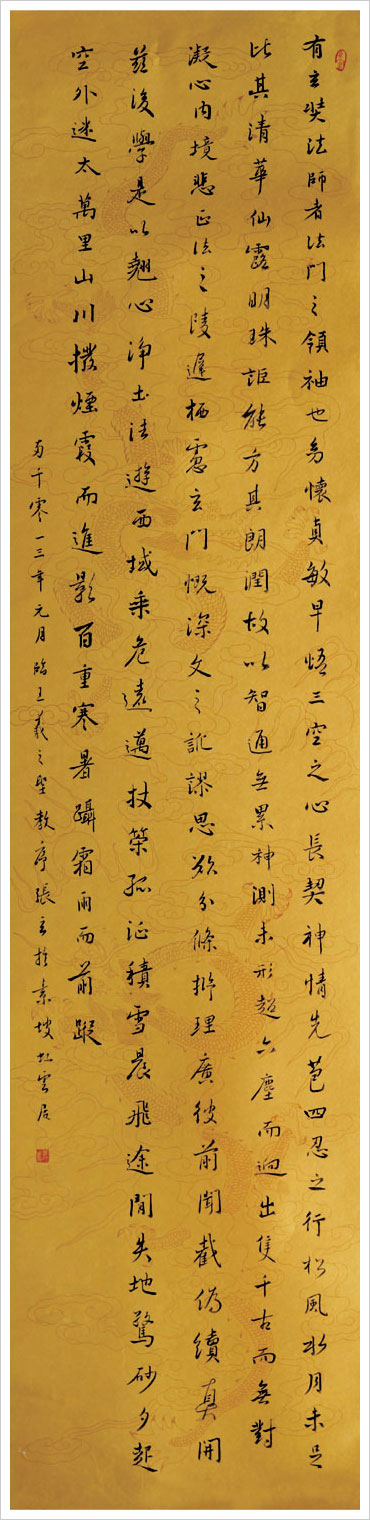 有玄奘法師者法門之領袖也幼懷貞敏早悟三空之心長契神情先苞四忍之行松風水月未足
比其清華仙露明珠詎能方其朗潤故以智通無累神測未形超六塵而迥出隻千古而無對
凝心內境悲正法之陵遲栖慮玄門慨深文之訛謬思欲分條析理廣彼前聞截偽續真開
茲後學是以翹心淨土法遊西域乘危遠邁杖策孤征積雪晨飛途間失地驚砂夕起
空外迷天萬里山川撥煙霞而進影百重寒暑躡霜雨而前蹤
貳千零一三年元月臨王羲之聖教序張玄於素坡虹雲居